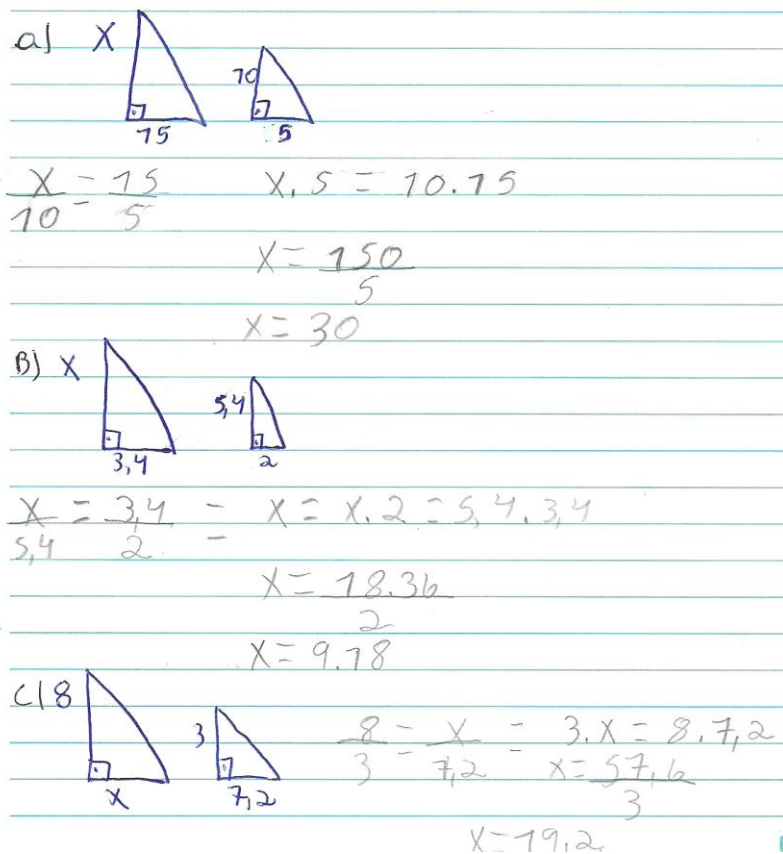 a) X 10
15 5
X/10 = 15/5 X.5 = 10.15
X = 150/5
X = 30
B) X 5,4
3,4 2
X/5,4 = 3,4/2 = X = X.2 = 5,4.3,4
X = 18.36/2
X = 9.18
C) 8 3
X 7,2
8/3 = X/7,2 = 3.X = 8.7,2
X = 57,6/3
X = 19,2